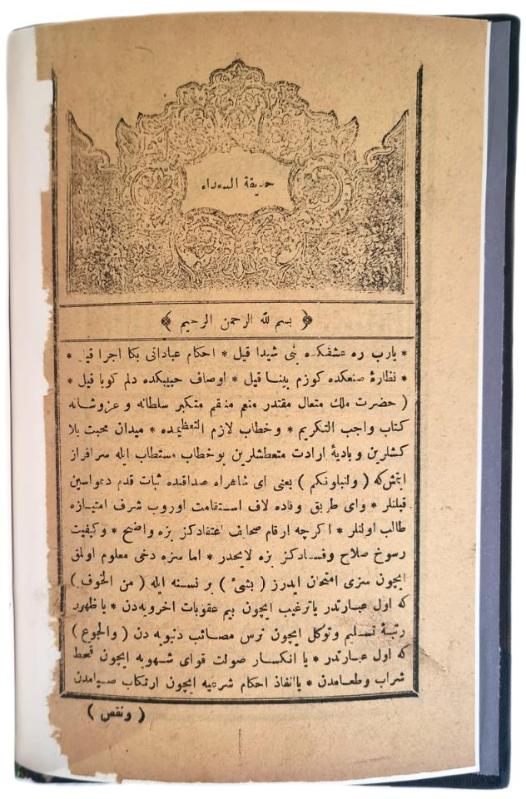 حديقة السعداء
﴿ بسم الله الرحمن الرحيم ﴾
* يارب ره عشقكده بنى شيدا قيل * احكام عباداتى بكا اجرا قيل *
* نظارهٔ صنعكده كوزم بينا قيل * اوصاف حبيبكده دلم كويا قيل *
( حضرت ملك متعال مقتدر منعم منتقم متكبر سلطانه و عز وشانه
كتاب واجب التكريم * وخطاب لازم التعظيمده * ميدان محبت بلا
كشلرين و باديهٔ ارادت متعطشلرين بو خطاب مستطاب ايله سرافراز
ايتمش كه ( ولنبلونكم ) يعنى اى شاهراه صداقتده ثبات قدم دعواسين
قيلنلر * واى طريق وفاده لاف استقامت اوروب شرف امتيازه
طالب اولنلر * اكرچه ارقام صحايف اعتقادكز بزه واضح * وكيفيت
رسوخ صلاح وفسادكز بزه لايحدر * اما سزه دخى معلوم اولمق
ايچون سزى امتحان ايدرز ( بشئ ) بر نسنه ايله ( من الخوف )
كه اول عبارتدر يا ترغيب ايچون بيم عقوبات اخرويه دن * يا ظهور
رتبهٔ تسليم وتوكل ايچون ترس مصائب دنيويه دن ( والجوع )
كه اول عبارتدر * يا انكسار صولت قواى شهويه ايچون قحط
شراب وطعامدن * يا انفاذ احكام شرعيه ايچون ارتكاب صيامدن
( ونقص )